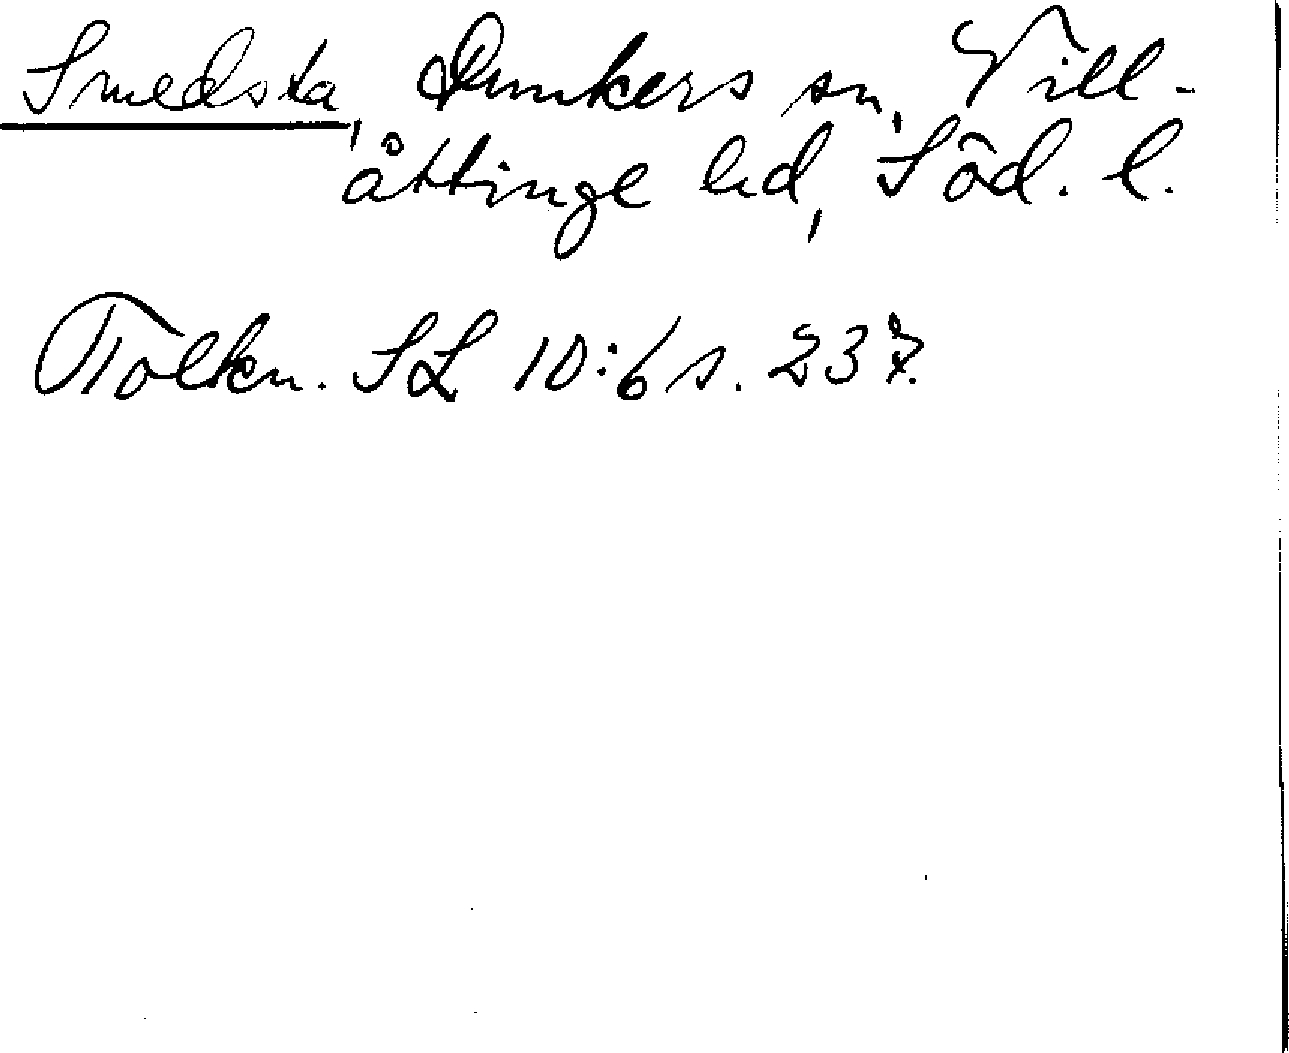 Smedsta, Dunkers sn, Vill-
åttinge hd, Söd. l.
Tolkn. SL 10:6 s. 237.